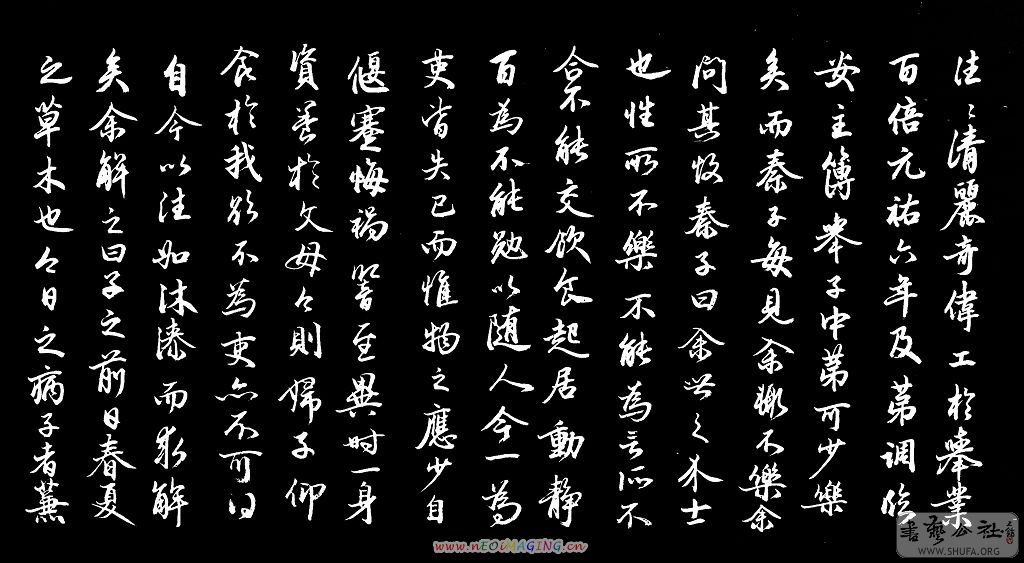 往〻清麗奇偉工於舉業
百倍元祐六年及第調臨
安主簿舉子中第可少樂
矣而秦子每見余輒不樂余
問其故秦子曰余世之介士
也性所不樂不能為言所不
合不能交飲食起居動靜
百為不能勉以隨人今一為
吏皆失己而惟物之應少自
偃蹇悔禍響至異时一身
資養於父母今則婦子仰
食於我欲不為吏亦不可得
自今以往如沐漆而求解
矣余解之曰子之前日春夏
之草木也今日之病子者蒹
www.nEOiMAGING.cn
書藝公社
WWW.SHUFA.ORG